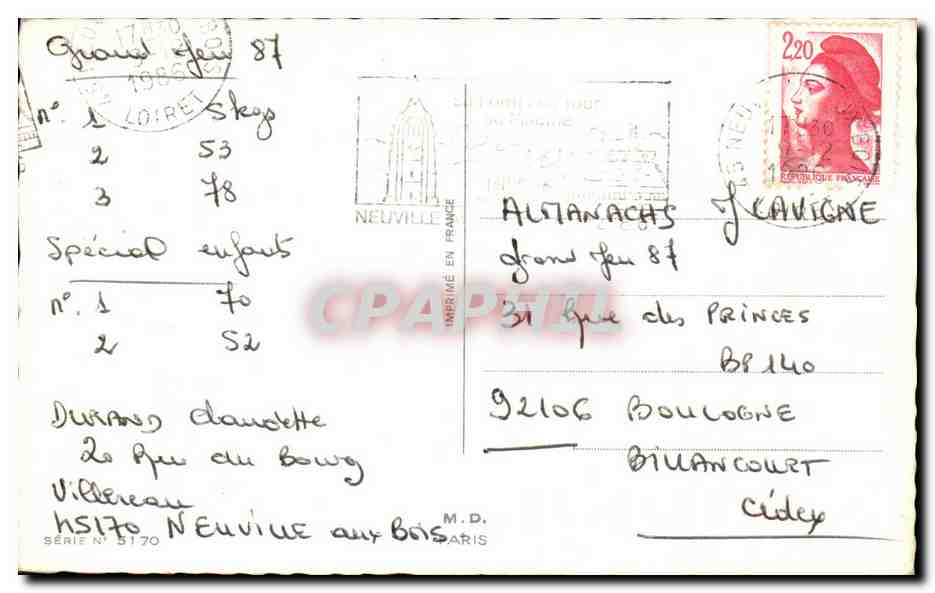 Grand Jeu 87
n°. 1 Skys
2 53
3 78
Spécial enfants
n°. 1 70
2 52
DURAND Claudette
20 Rue du Bourg
Villereau
45170 NEUVILLE aux BOIS
SÉRIE N° 5170
M.D.
PARIS
IMPRIMÉ EN FRANCE
17 30
1986
LOIRET
NEUVILLE
2,20
RÉPUBLIQUE FRANÇAISE
ALMANACHS J LAVIGNE
grand Jeu 87
31 Rue des PRINCES
BP 140
92106 BOULOGNE
BILLANCOURT
Cédex
CPAPHIL